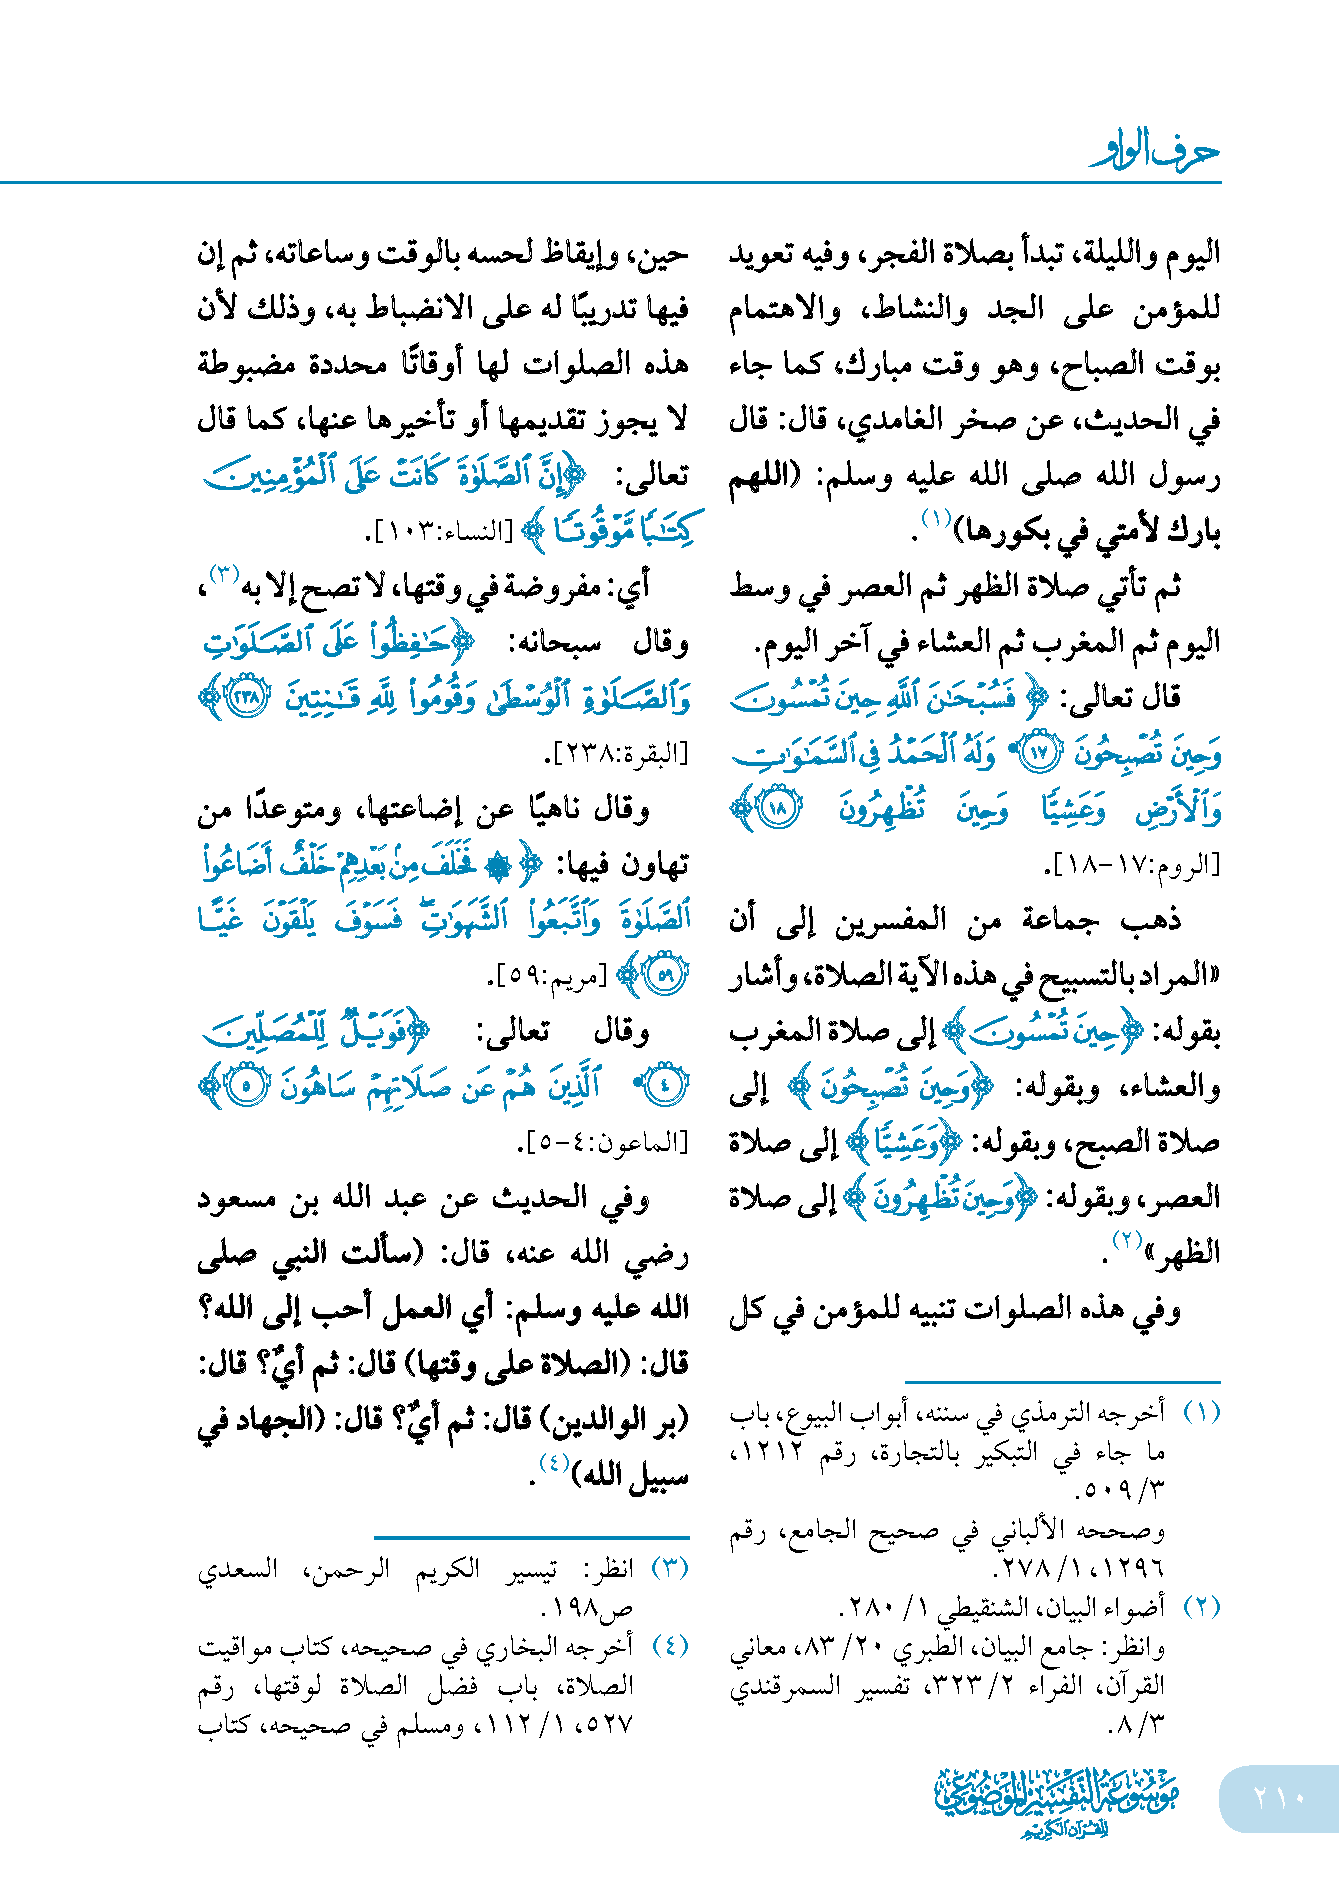 حرف الواو
اليوم والليلة، تبدأ بصلاة الفجر، وفيه تعويد
للمؤمن على الجد والنشاط، والاهتمام
بوقت الصباح، وهو وقت مبارك، كما جاء
في الحديث، عن صخر الغامدي، قال: قال
رسول الله صلى الله عليه وسلم: (اللهم
بارك لأمتي في بكورها)(١).
ثم تأتي صلاة الظهر ثم العصر في وسط
اليوم ثم المغرب ثم العشاء في آخر اليوم.
قال تعالى: ﴿فَسُبْحَٰنَ ٱللَّهِ حِينَ تُمْسُونَ
وَحِينَ تُصْبِحُونَ ﴿١٧﴾ وَلَهُ ٱلْحَمْدُ فِي ٱلسَّمَٰوَٰتِ
وَٱلْأَرْضِ وَعَشِيًّا وَحِينَ تُظْهِرُونَ ﴿١٨﴾﴾
[الروم:١٧-١٨].
ذهب جماعة من المفسرين إلى أن
«المراد بالتسبيح في هذه الآية الصلاة، وأشار
بقوله: ﴿حِينَ تُمْسُونَ﴾ إلى صلاة المغرب
والعشاء، وبقوله: ﴿وَحِينَ تُصْبِحُونَ﴾ إلى
صلاة الصبح، وبقوله: ﴿وَعَشِيًّا﴾ إلى صلاة
العصر، وبقوله: ﴿وَحِينَ تُظْهِرُونَ﴾ إلى صلاة
الظهر»(٢).
وفي هذه الصلوات تنبيه للمؤمن في كل
(١) أخرجه الترمذي في سننه، أبواب البيوع، باب
ما جاء في التبكير بالتجارة، رقم ١٢١٢،
٣/ ٥٠٩.
وصححه الألباني في صحيح الجامع، رقم
١٢٩٦، ١/ ٢٧٨.
(٢) أضواء البيان، الشنقيطي ١/ ٢٨٠.
وانظر: جامع البيان، الطبري ٢٠/ ٨٣، معاني
القرآن، الفراء ٢/ ٣٢٣، تفسير السمرقندي
٣/ ٨.
حين، وإيقاظ لحسه بالوقت وساعاته، ثم إن
فيها تدريبًا له على الانضباط به، وذلك لأن
هذه الصلوات لها أوقاتًا محددة مضبوطة
لا يجوز تقديمها أو تأخيرها عنها، كما قال
تعالى: ﴿إِنَّ ٱلصَّلَوٰةَ كَانَتْ عَلَى ٱلْمُؤْمِنِينَ
كِتَٰبًا مَّوْقُوتًا﴾ [النساء:١٠٣].
أي: مفروضة في وقتها، لا تصح إلا به(٣)،
وقال سبحانه: ﴿حَٰفِظُوا۟ عَلَى ٱلصَّلَوَٰتِ
وَٱلصَّلَوٰةِ ٱلْوُسْطَىٰ وَقُومُوا۟ لِلَّهِ قَٰنِتِينَ ﴿٢٣٨﴾﴾
[البقرة:٢٣٨].
وقال ناهيًا عن إضاعتها، ومتوعدًا من
تهاون فيها: ﴿۞ فَخَلَفَ مِنۢ بَعْدِهِمْ خَلْفٌ أَضَاعُوا۟
ٱلصَّلَوٰةَ وَٱتَّبَعُوا۟ ٱلشَّهَوَٰتِ ۖ فَسَوْفَ يَلْقَوْنَ غَيًّا
﴿٥٩﴾﴾ [مريم:٥٩].
وقال تعالى: ﴿فَوَيْلٌ لِّلْمُصَلِّينَ
﴿٤﴾ ٱلَّذِينَ هُمْ عَن صَلَاتِهِمْ سَاهُونَ ﴿٥﴾﴾
[الماعون:٤-٥].
وفي الحديث عن عبد الله بن مسعود
رضي الله عنه، قال: (سألت النبي صلى
الله عليه وسلم: أي العمل أحب إلى الله؟
قال: (الصلاة على وقتها) قال: ثم أيٌ؟ قال:
(بر الوالدين) قال: ثم أيٌ؟ قال: (الجهاد في
سبيل الله)(٤).
(٣) انظر: تيسير الكريم الرحمن، السعدي
ص١٩٨.
(٤) أخرجه البخاري في صحيحه، كتاب مواقيت
الصلاة، باب فضل الصلاة لوقتها، رقم
٥٢٧، ١/ ١١٢، ومسلم في صحيحه، كتاب
موسوعة التفسير الموضوعي
للقرآن الكريم
٢١٠